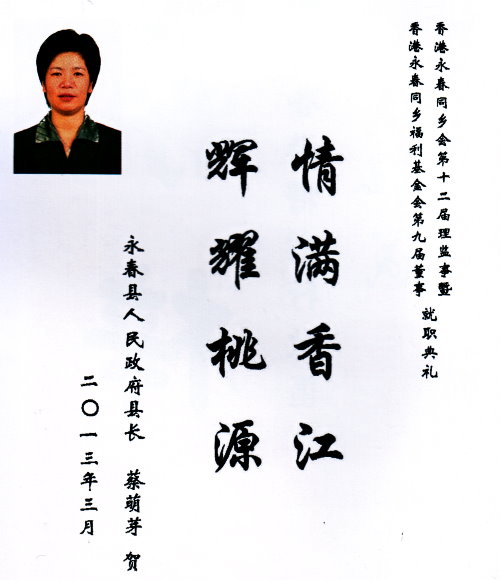 香港永春同乡会第十二届理监事暨
香港永春同乡福利基金会第九届董事
就职典礼
情满香江
辉耀桃源
永春县人民政府县长 蔡萌芽 贺
二〇一三年三月